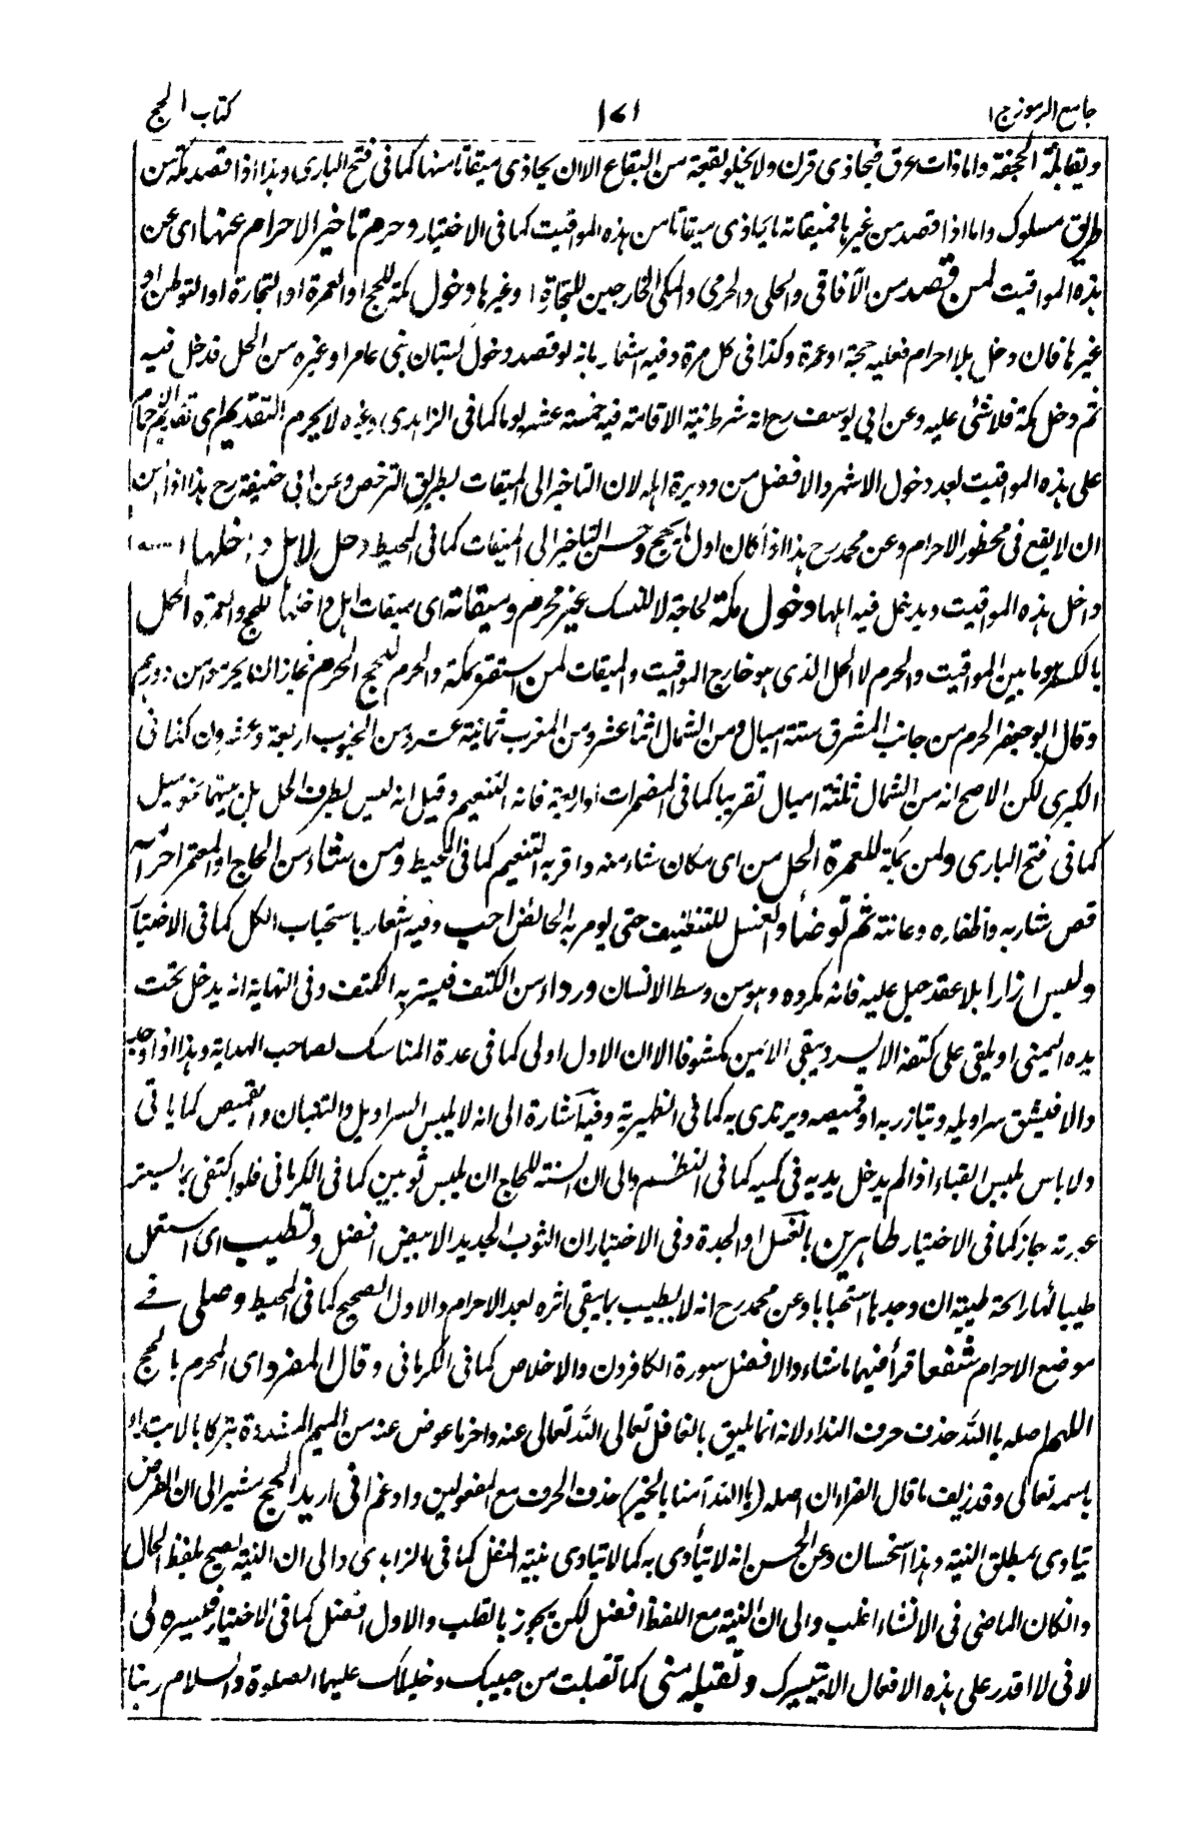 جامع الرموز ج ١
١٧١
كتاب الحج
ويقابله الجحفة واما ذات عرق فيحاذى قرن ولا يخلو بقعة من البقاع الا ان يحاذى ميقاتا منها كما فى فتح البارى وهذا اذا قصد مكة من
طريق مسلوك واما اذا قصد من غيرها فميقاته ما يحاذى ميقاتا من هذه المواقيت كما فى الاختيار وحرم تاخير الاحرام عنها اى عن
هذه المواقيت لمن قصد من الآفاقى والحلى والحرمى والمكى الخارجين للتجارة وغيرها دخول مكة للحج او العمرة او التجارة او التوطن او
غيرها فان دخل بلا احرام فعليه حجة او عمرة وكذا فى كل مرة وفيه اشعار بانه لو قصد دخول بستان بنى عامر او غيره من الحل قد خل فيه
ثم دخل مكة فلا شئ عليه وعن ابى يوسف رح انه شرط نية الاقامة فيه خمسة عشر يوما كما فى الزاهدى وغيره لا يحرم التقديم اى تقديم الاحرام
على هذه المواقيت بعد دخول الاشهر والافضل من دويرة اهله لان التاخير الى الميقات بطريق الترخص وعن ابى حنيفة رح هذا اذا امن
ان لا يقع فى محظور الاحرام وعن محمد رح هذا اذا كان اول ما يحج وحسن التاخير الى الميقات كما فى المحيط وحل لاهل داخلها
داخل هذه المواقيت ويدخل فيه اهلها دخول مكة لحاجة لا للنسك غير محرم وميقاته اى ميقات اهل داخلها للحج والعمرة الحل
بالكسر وما بين المواقيت والحرم لا الحل الذى هو خارج المواقيت والميقات لمن استقر بمكة والحرم للحج الحرم فجاز ان يحرموا من دورهم
وقال ابو جعفر الحرم من جانب المشرق ستة اميال ومن الشمال اثنا عشر ومن المغرب ثمانية عشر ومن الجنوب اربعة وعشرون كذا فى
الكبرى لكن الاصح انه من الشمال ثلثة اميال تقريبا كما فى المضمرات او اربعة فانه التنعيم وقيل انه ليس بطرف الحل بل بينهما نحو ميل
كما فى فتح البارى ولمن بمكة للعمرة الحل من اى مكان شاء منه واقربه التنعيم كما فى المحيط ومن شاء من الحاج او المعتمر احرامه
قص شاربه واظفاره وعانته ثم توضأ والغسل للتنظيف حتى يومر به الحائض احب وفيه اشعار باستحباب الكل كما فى الاختيار
ولبس ازارا بلا عقد حبل عليه فانه مكروه وهو من وسط الانسان ورداء من الكتف فيستر به الكتف وفى النهاية انه يدخل تحت
يده اليمنى او يلقى على كتفه الايسر ويبقى الايمن مكشوفا الا ان الاول اولى كما فى عدة المناسك لصاحب الهداية وهذا اذا وجد
والا فيشق سراويله ويتازر به او قميصه ويرتدى به كما فى الظهيرية وفيه اشارة الى انه لا يلبس السراويل والتبان والقميص كما ياتى
ولا باس بلبس القباء اذا لم يدخل يديه فى كميه كما فى النظم والى ان السنة للحاج ان يلبس ثوبين كما فى الكرمانى فلو اكتفى بما يستر
عورته جاز كما فى الاختيار طاهرين بالغسل او الجدة وفى الاختيار ان الثوب الجديد الابيض افضل وتطيب اى استعمل
طيبا لها رائحة طيبة ان وجدها استحبابا وعن محمد رح انه لا يطيب بما يبقى اثره بعد الاحرام والاول الصحيح كما فى المحيط وصلى فى
موضع الاحرام شفعا قرأ فيهما ما شاء والافضل سورة الكافرون والاخلاص كما فى الكرمانى وقال المفرد اى المحرم بالحج
اللهم اصله يا الله حذف حرف النداء لانه انما يليق بالغافل تعالى الله تعالى عنه واخر ما عوض عنه من الميم المشددة تبركا بالابتداء
باسمه تعالى وقد زيف ما قال الفراء ان اصله (يا الله آمنا بالخير) حذف الحرف مع المفعولين وادغم انى اريد الحج مشيرا الى ان الفرض
يتاوى بمطلق النية وهذا استحسان وعن الحسن انه لا يتأوى به كما لا يتاوى بنية النفل كما فى الزاهدى والى ان النية تصح بلفظ الحال
وانكان الماضى فى الانشاء اغلب والى ان النية مع اللفظ افضل لكن يجوز بالقلب والاول افضل كما فى الاختيار فيسره لى
لانى لا اقدر على هذه الافعال الا بتيسيرك وتقبله منى كما تقبلت من حبيبك وخليلك عليهما الصلوة والسلام ربنا